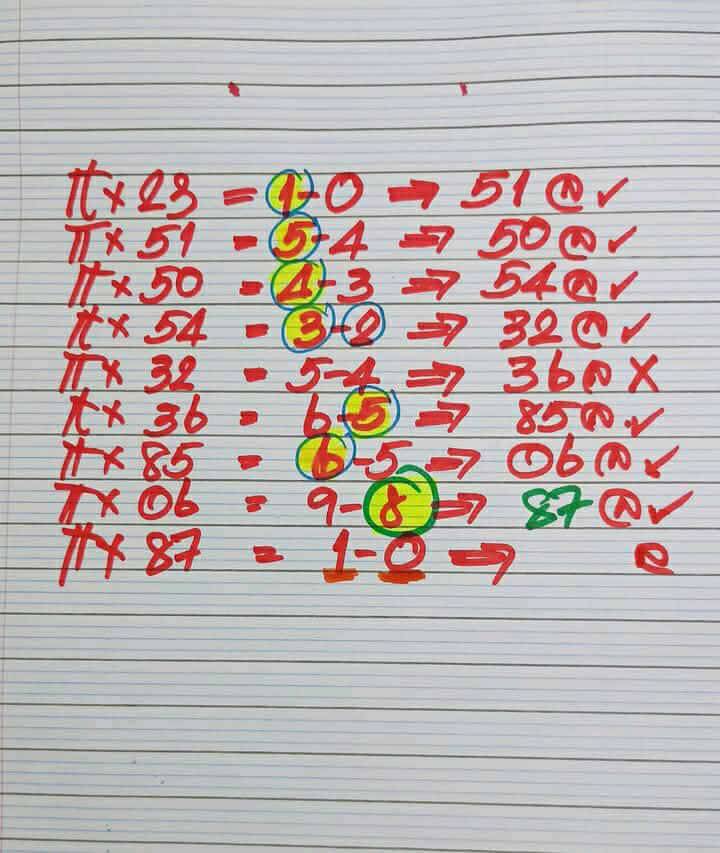 π × 23 = 1-0 → 51 @ ✓
π × 51 = 5-4 ⇒ 50 @ ✓
π × 50 = 4-3 ⇒ 54 @ ✓
π × 54 = 3-2 ⇒ 32 @ ✓
π × 32 = 5-4 ⇒ 36 @ X
π × 36 = 6-5 ⇒ 85 @ ✓
π × 85 = 6-5 ⇒ 06 @ ✓
π × 06 = 9-8 ⇒ 87 @ ✓
π × 87 = 1-0 ⇒ @